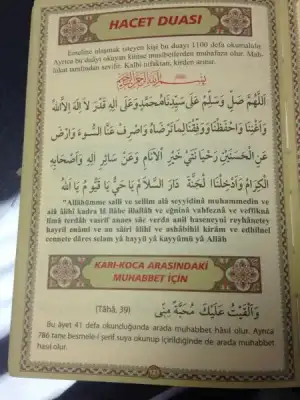 HACET DUASI
Emeline ulaşmak isteyen kişi bu duayı 1100 defa okumalıdır.
Ayrıca bu duâyı okuyan kimse musibetlerden muhafaza olur. Mah-
lûkat tarafından sevilir. Kalbi nifaktan, kirden arınır.
اَللّٰهُمَّ صَلِّ وَسَلِّمْ عَلٰى سَيِّدِنَا مُحَمَّدٍ وَعَلٰى اٰلِهِ قَدْرَ لَا اِلٰهَ اِلَّا اللّٰهُ
وَاَغْنِنَا وَاحْفَظْنَا وَوَفِّقْنَا لِمَا تَرْضَاهُ وَاصْرِفْ عَنَّا السُّوءَ وَارْضَ
عَنِ الْحَسَنَيْنِ رَيْحَانَتَىْ خَيْرِ الْاَنَامِ وَعَنْ سَائِرِ اٰلِهِ وَاَصْحَابِهِ
الْكِرَامِ وَاَدْخِلْنَا الْجَنَّةَ دَارَ السَّلَامِ يَا حَىُّ يَا قَيُّومُ يَا اَللّٰهُ
"Allâhümme salli ve sellim alâ seyyidinâ muhammedin ve
alâ âlihî kadra lâ ilâhe illallâh ve eğninâ vahfeznâ ve veffiknâ
limâ terdâh vasrif annes sûe verda anil haseneyni reyhânetey
hayril enâmi ve an sâiri âlihî ve ashâbihil kirâm ve edhilnel
cennete dâres selam yâ hayyü yâ kayyûmü yâ Allâh
KARI-KOCA ARASINDAKİ
MUHABBET İÇİN
(Tâhâ, 39) وَاَلْقَيْتُ عَلَيْكَ مَحَبَّةً مِنّٖى
Bu âyet 41 defa okunduğunda arada muhabbet hâsıl olur. Ayrıca
786 tane besmele-i şerif suya okunup içirildiğinde de arada muhabbet
hasıl olur.